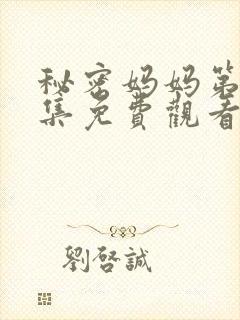 秘密妈妈第
集免费觀看
劉啓誠